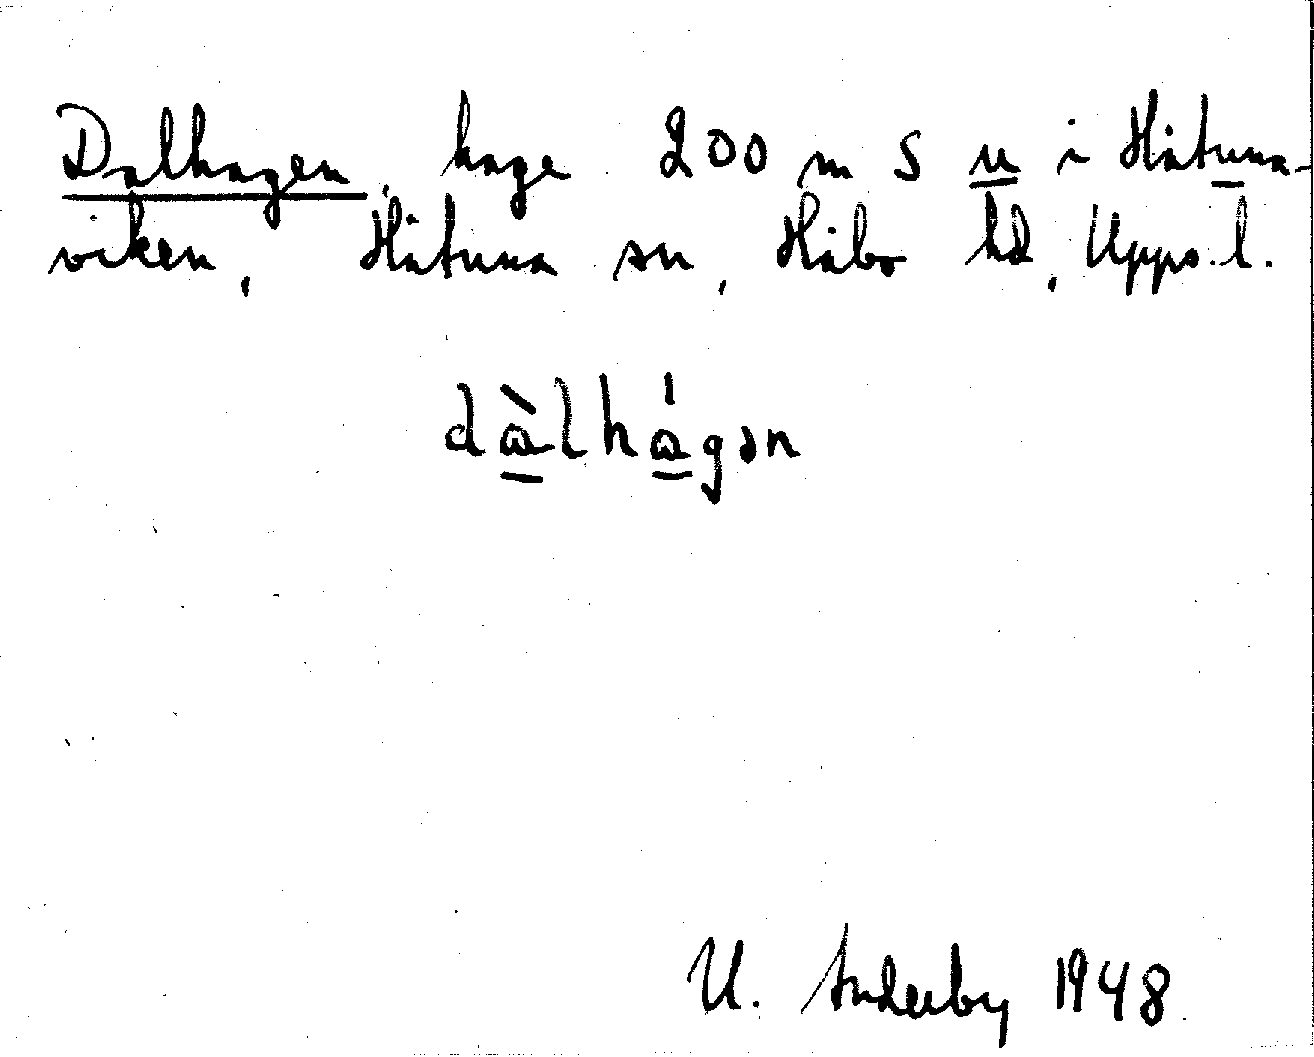 Dalhagen, hage 200 m S u i Håtuna-
viken, Håtuna sn, Håbo hd, Upps. l.
dàlhágən
U. 1948